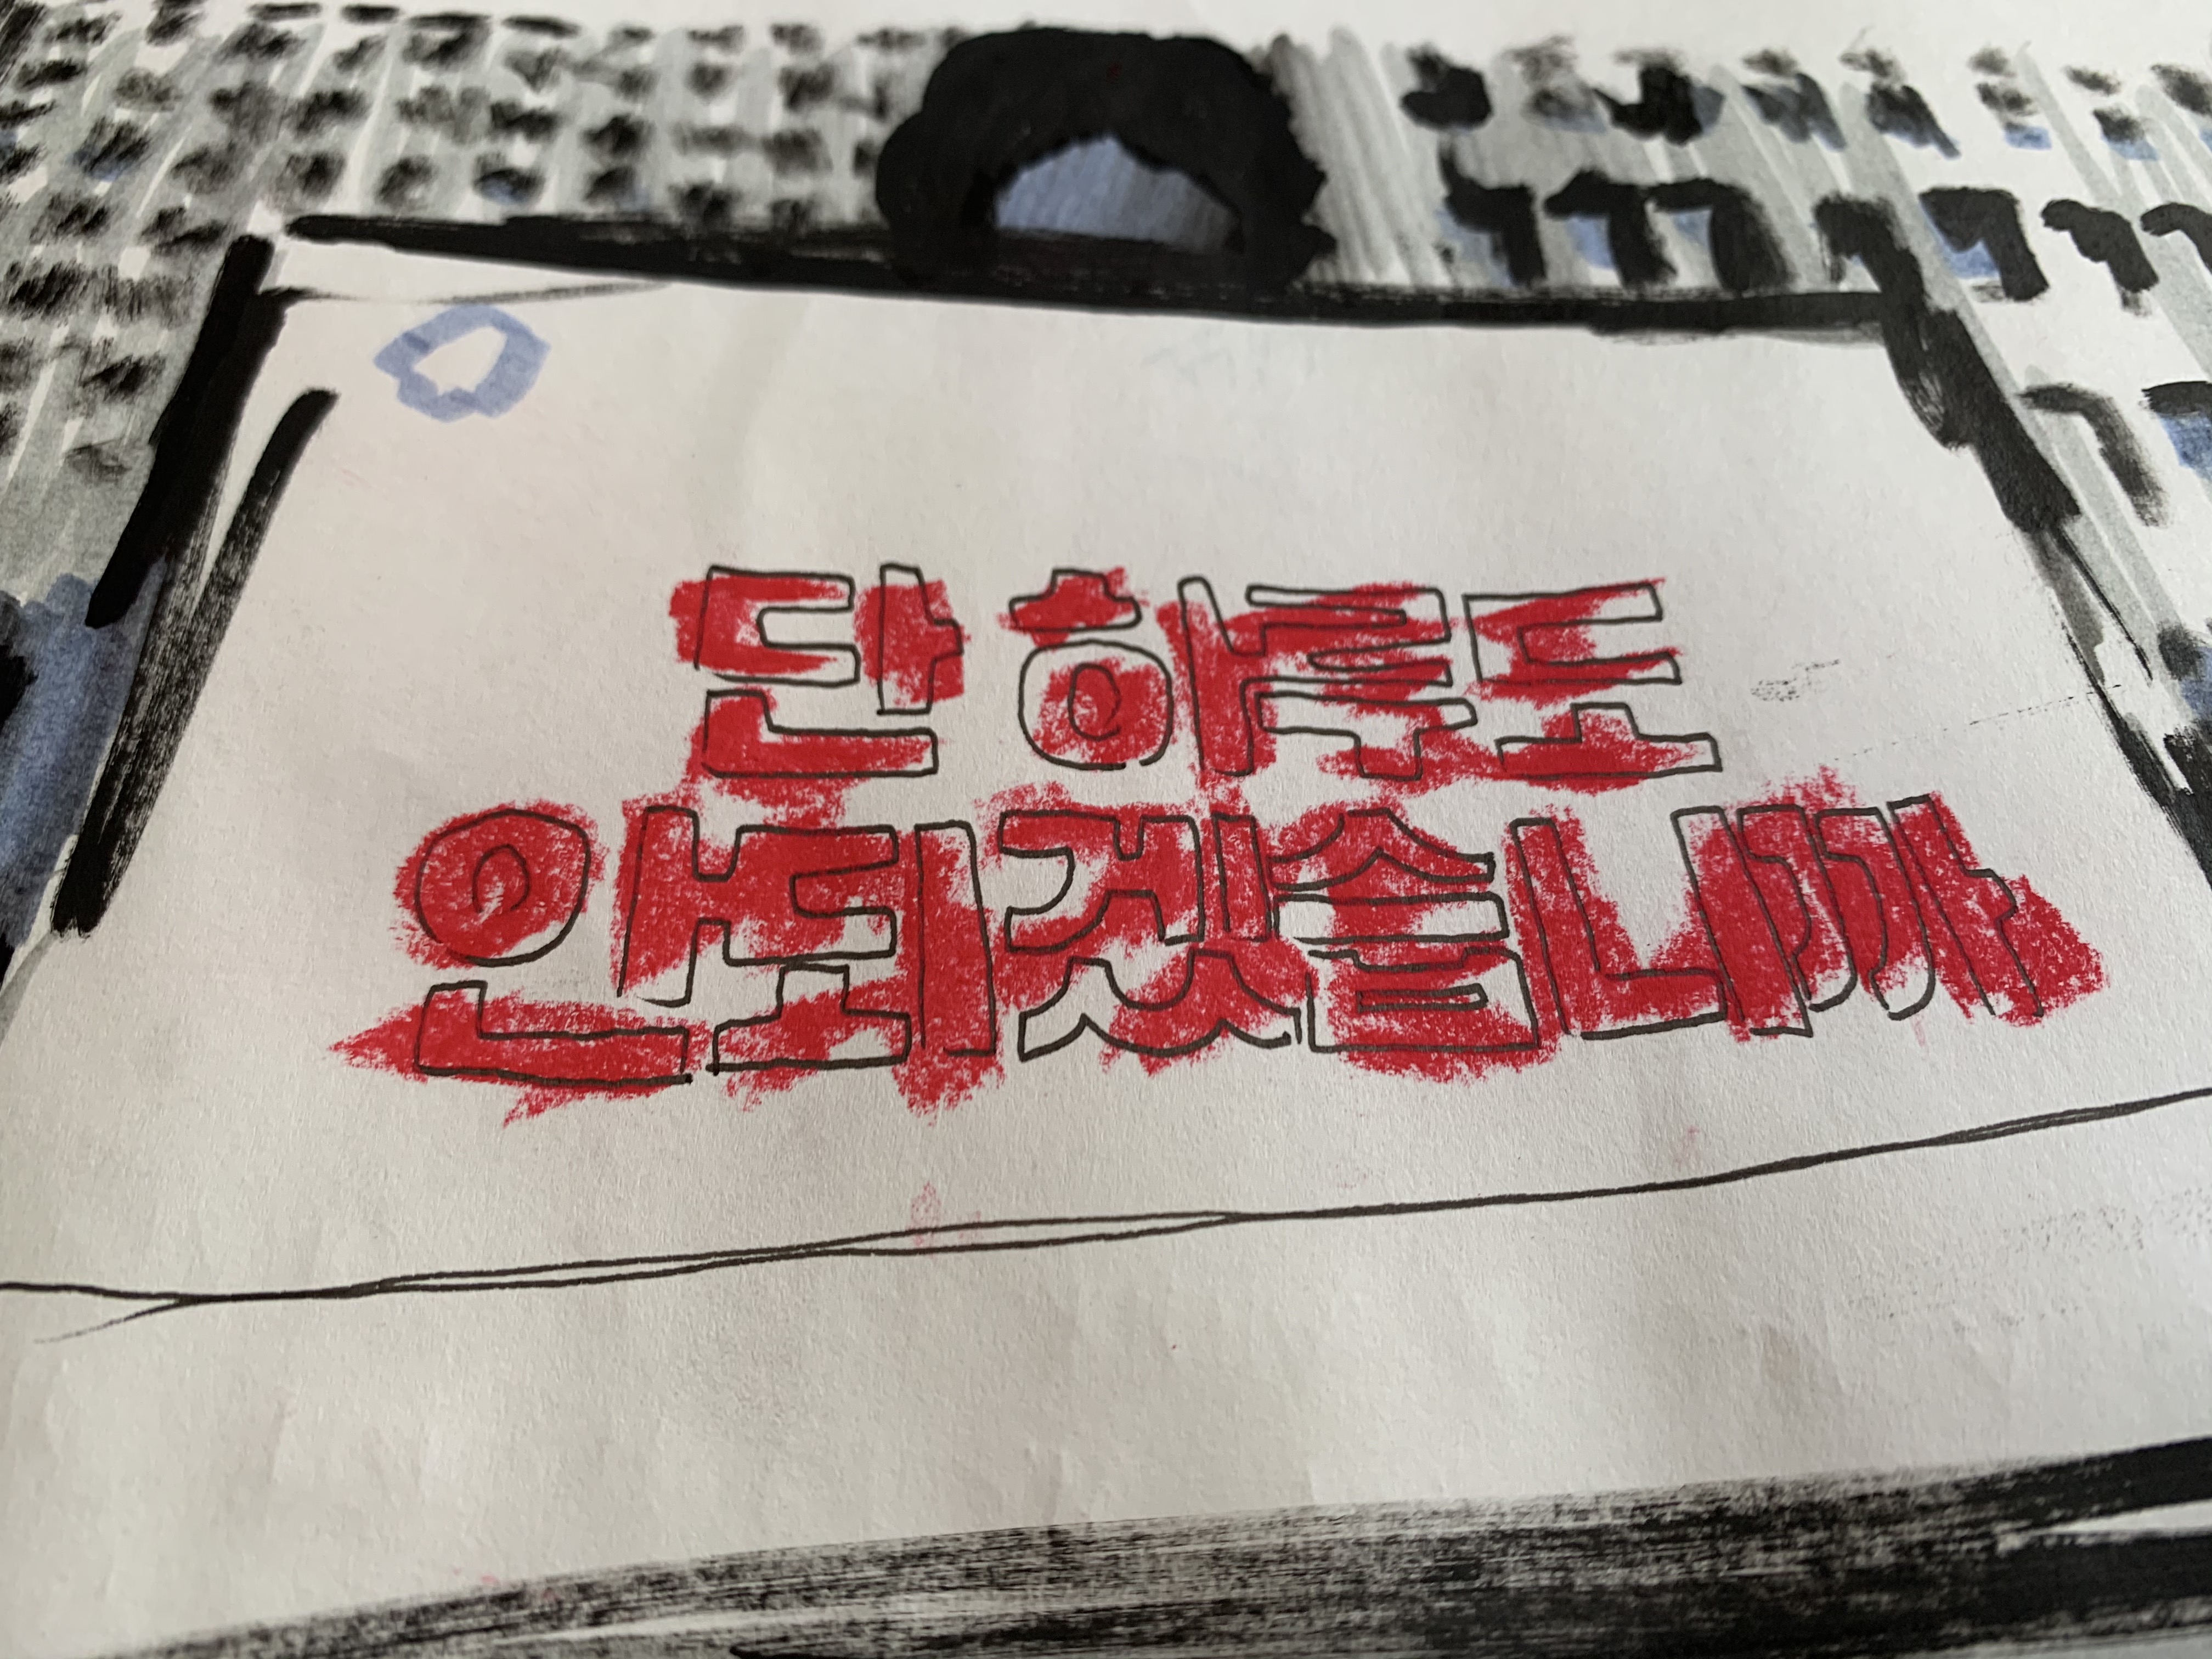 단 하루도
안되겠습니까